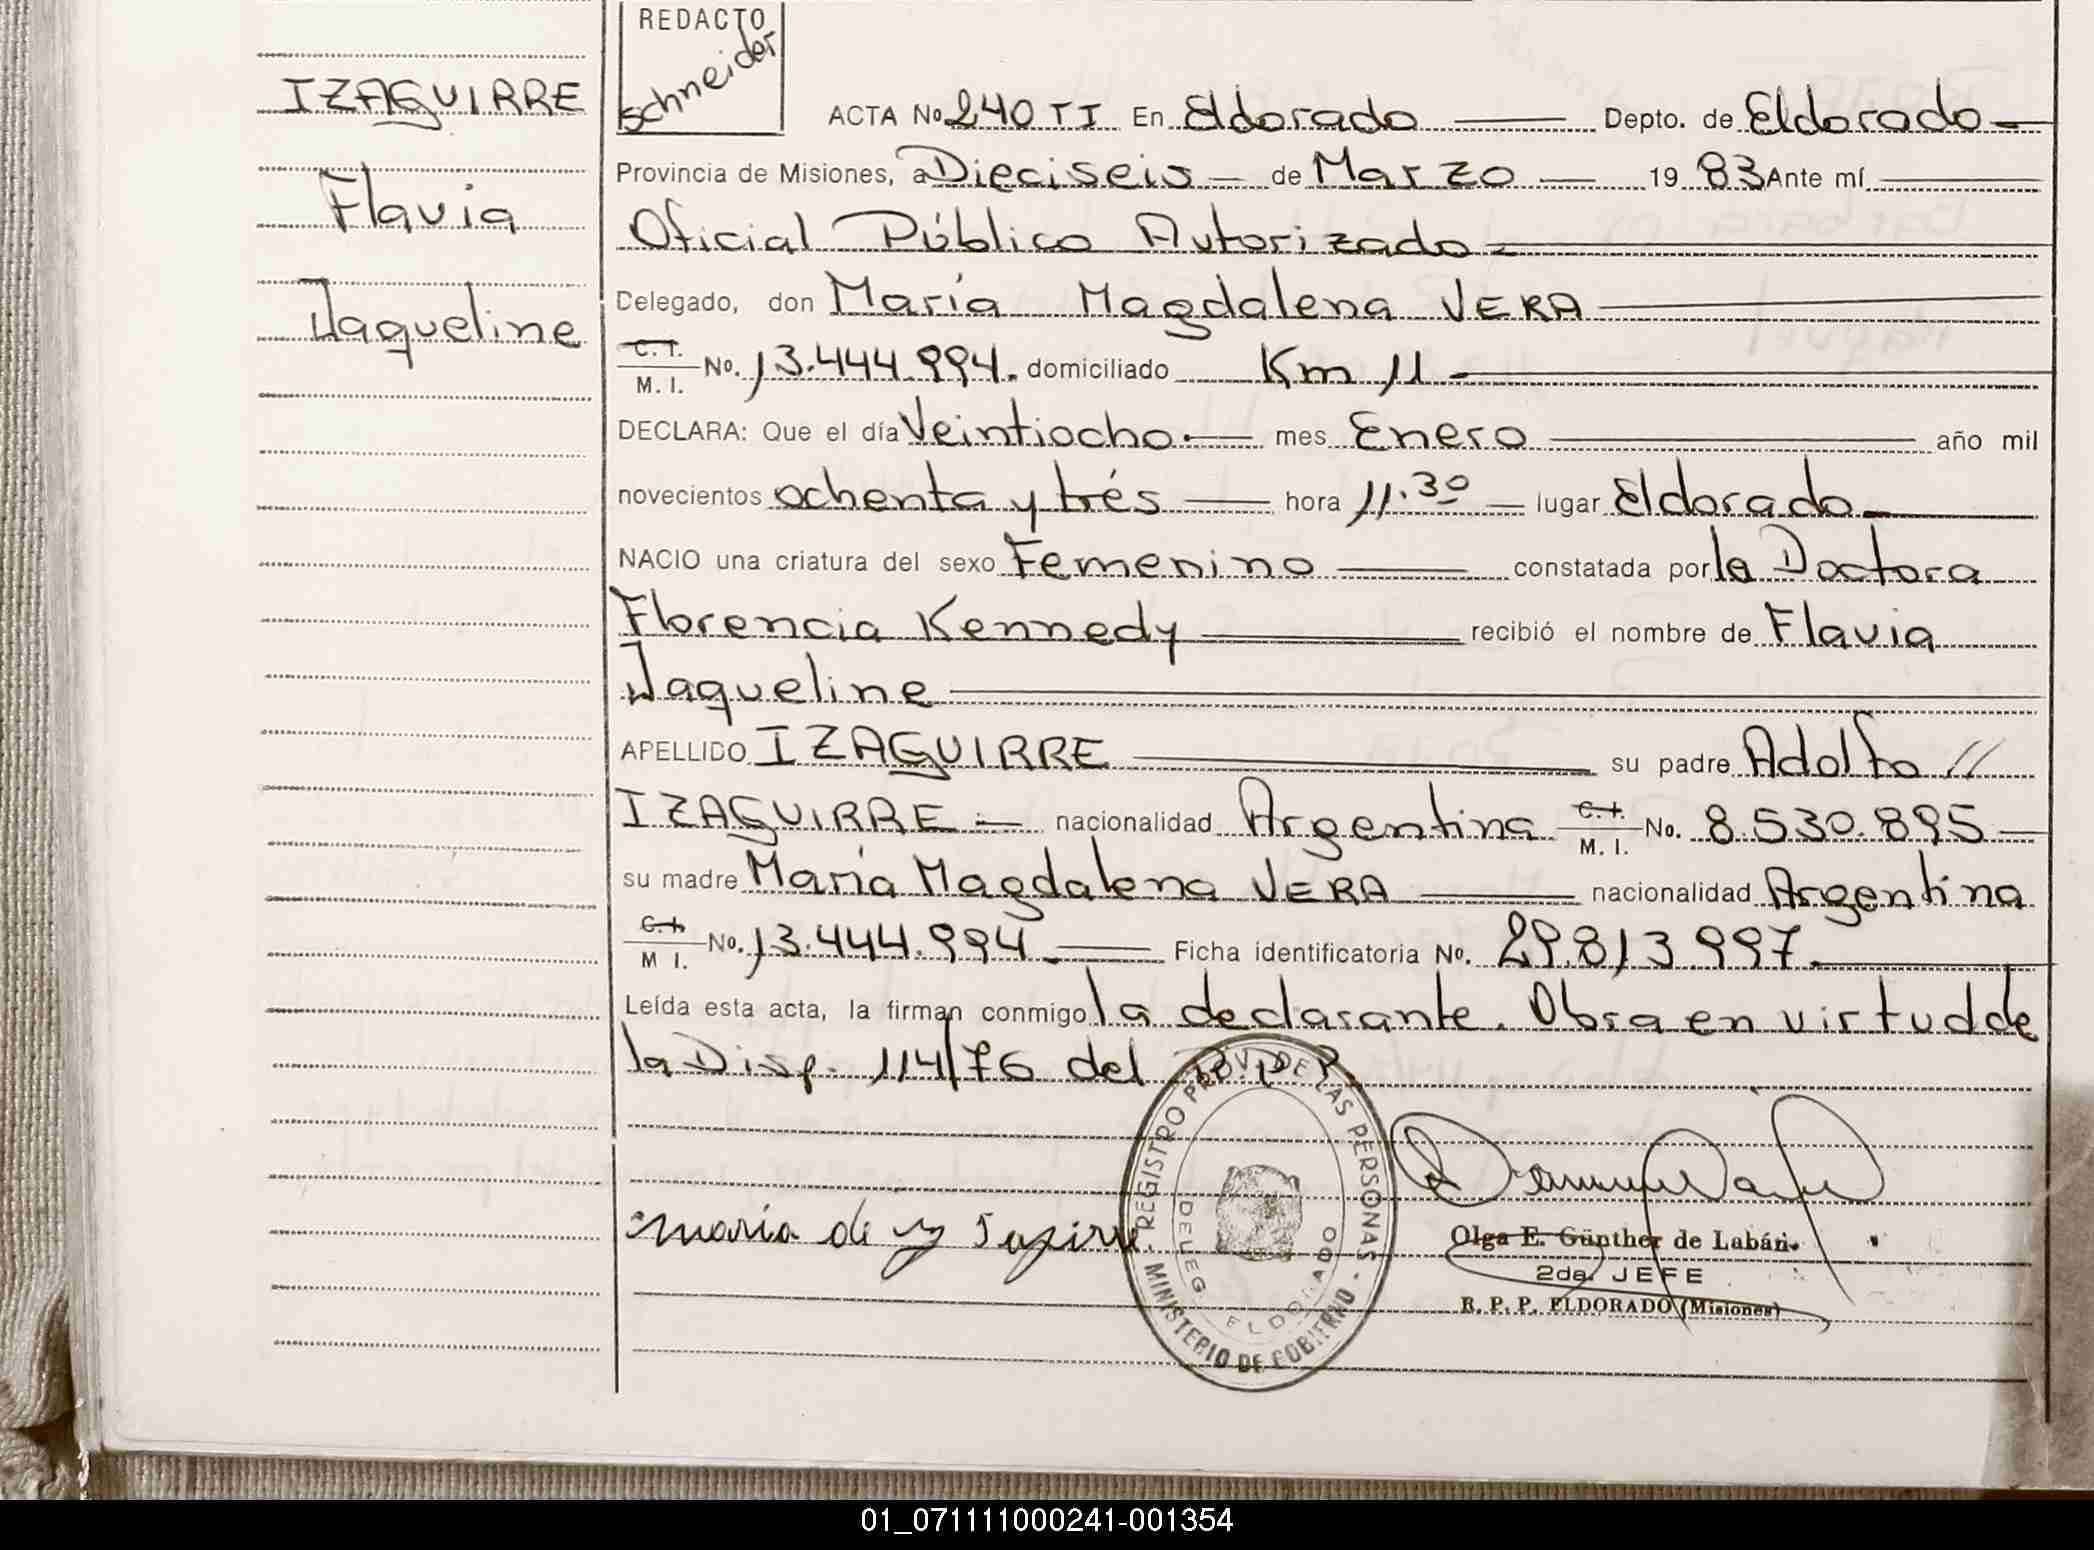 REDACTO
Schneider
IZAGUIRRE
Flavia
Jaqueline
ACTA No 240 TI En Eldorado Depto. de Eldorado
Provincia de Misiones, a Dieciseis de Marzo 19 83 Ante mí
Oficial Público Autorizado
Delegado, don María Magdalena VERA
C. I. / M. I. No. 13.444.994. domiciliado Km 11
DECLARA: Que el día Veintiocho mes Enero año mil
novecientos ochenta y trés hora 11.30 lugar Eldorado
NACIO una criatura del sexo Femenino constatada por la Doctora
Florencia Kennedy recibió el nombre de Flavia
Jaqueline
APELLIDO IZAGUIRRE su padre Adolfo //
IZAGUIRRE nacionalidad Argentina C. I. / M. I. No. 8.530.895
su madre María Magdalena VERA nacionalidad Argentina
C. I. / M I. No. 13.444.994. Ficha identificatoria No. 29.813.997.
Leída esta acta, la firman conmigo la declarante. Obra en virtud de
la Disp. 114/76 del
REGISTRO PROV. DE LAS PERSONAS
MINISTERIO DE GOBIERNO
DELEG. ELDORADO
maria de
Olga E. Günther de Labán
2da. JEFE
R. P. P. ELDORADO (Misiones)
01_071111000241-001354